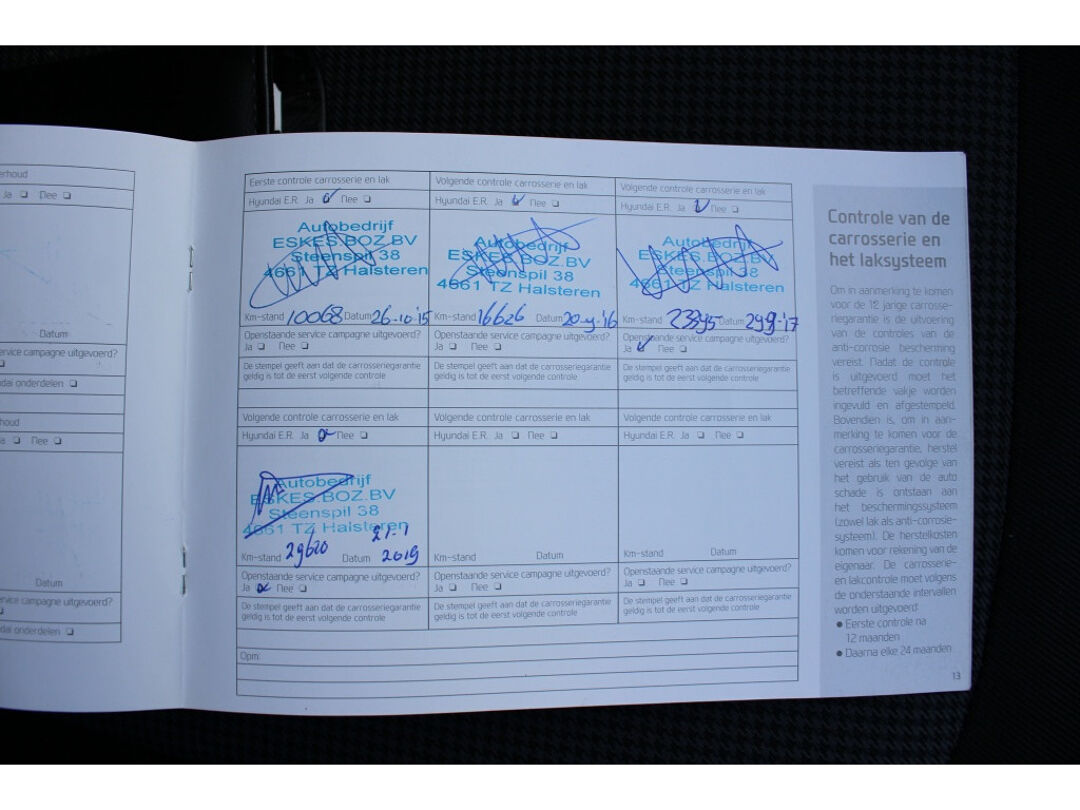 erhoud
Ja ❏ Nee ❏
Datum
ervice campagne uitgevoerd?
dai onderdelen ❏
houd
a ❏ Nee ❏
Datum
rvice campagne uitgevoerd?
dai onderdelen ❏
Eerste controle carrosserie en lak
Hyundai E.R. Ja Nee ❏
Autobedrijf
ESKES.BOZ.BV
Steenspil 38
4661 TZ Halsteren
Km-stand 10068 Datum 26-10-'15
Openstaande service campagne uitgevoerd?
Ja ❏ Nee ❏
De stempel geeft aan dat de carrosseriegarantie
geldig is tot de eerst volgende controle
Volgende controle carrosserie en lak
Hyundai E.R. Ja Nee ❏
Autobedrijf
ESKES.BOZ.BV
Steenspil 38
4661 TZ Halsteren
Km-stand 16626 Datum 20-9-'16
Openstaande service campagne uitgevoerd?
Ja ❏ Nee ❏
De stempel geeft aan dat de carrosseriegarantie
geldig is tot de eerst volgende controle
Volgende controle carrosserie en lak
Hyundai E.R. Ja Nee ❏
Autobedrijf
ESKES.BOZ.BV
Steenspil 38
4661 TZ Halsteren
Km-stand 23395 Datum 29-9-'17
Openstaande service campagne uitgevoerd?
Ja Nee ❏
De stempel geeft aan dat de carrosseriegarantie
geldig is tot de eerst volgende controle
Volgende controle carrosserie en lak
Hyundai E.R. Ja Nee ❏
Autobedrijf
ESKES.BOZ.BV
Steenspil 38
4661 TZ Halsteren
21-1
Km-stand 29620 Datum 2019
Openstaande service campagne uitgevoerd?
Ja Nee ❏
De stempel geeft aan dat de carrosseriegarantie
geldig is tot de eerst volgende controle
Volgende controle carrosserie en lak
Hyundai E.R. Ja ❏ Nee ❏
Km-stand Datum
Openstaande service campagne uitgevoerd?
Ja ❏ Nee ❏
De stempel geeft aan dat de carrosseriegarantie
geldig is tot de eerst volgende controle
Volgende controle carrosserie en lak
Hyundai E.R. Ja ❏ Nee ❏
Km-stand Datum
Openstaande service campagne uitgevoerd?
Ja ❏ Nee ❏
De stempel geeft aan dat de carrosseriegarantie
geldig is tot de eerst volgende controle
Opm:
Controle van de
carrosserie en
het laksysteem
Om in aanmerking te komen
voor de 12 jarige carrosse-
riegarantie is de uitvoering
van de controles van de
anti-corrosie bescherming
vereist. Nadat de controle
is uitgevoerd moet het
betreffende vakje worden
ingevuld en afgestempeld.
Bovendien is, om in aan-
merking te komen voor de
carrosseriegarantie, herstel
vereist als ten gevolge van
het gebruik van de auto
schade is ontstaan aan
het beschermingssysteem
(zowel lak als anti-corrosie-
systeem). De herstelkosten
komen voor rekening van de
eigenaar. De carrosserie-
en lakcontrole moet volgens
de onderstaande intervallen
worden uitgevoerd
● Eerste controle na
12 maanden
● Daarna elke 24 maanden
13